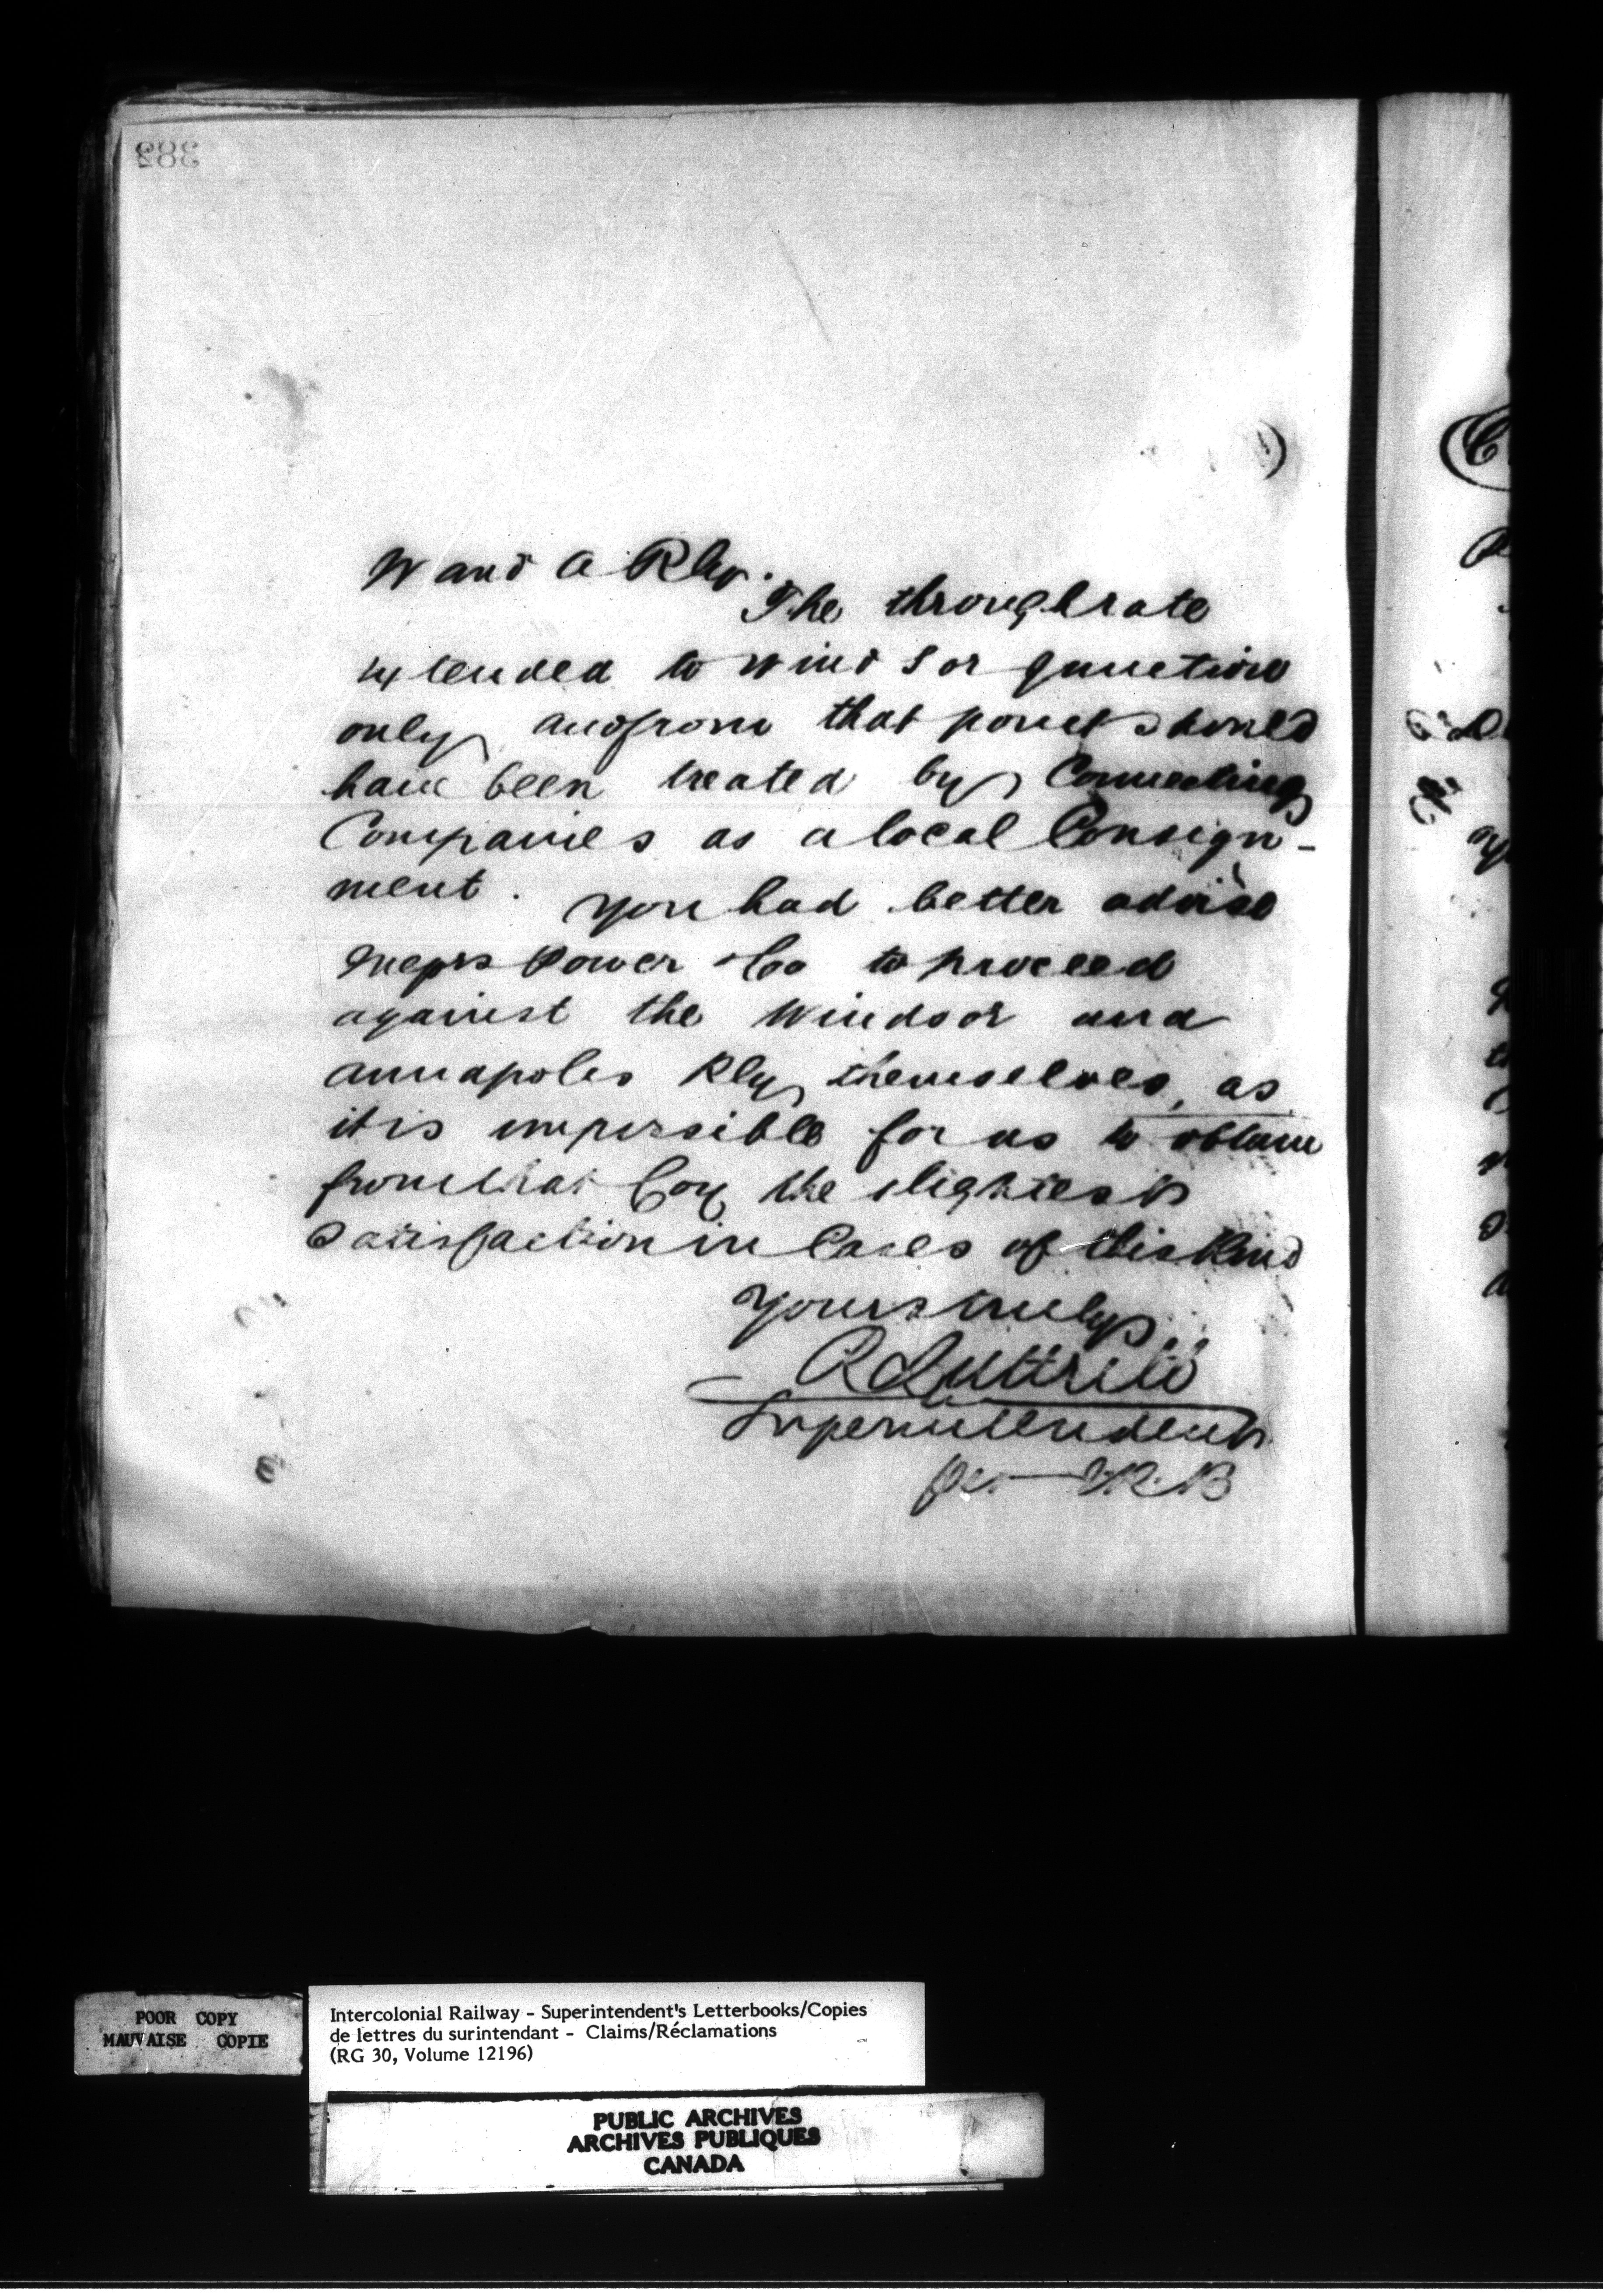 382
W and A Rly.
The through rate
extended to Windsor Junction
only and from that point should
have been treated by Connecting
Companies as a local Consign-
ment. You had better advise
Messrs Power & Co to proceed
against the Windsor and
Annapolis Rly themselves, as
it is impossible for us to obtain
from that Coy the slightest
Satisfaction in Cases of this Kind
Yours truly
Luttrell
Superintendent
per
POOR COPY
MAUVAISE COPIE
Intercolonial Railway - Superintendent's Letterbooks/Copies
de lettres du surintendant - Claims/Réclamations
(RG 30, Volume 12196)
PUBLIC ARCHIVES
ARCHIVES PUBLIQUES
CANADA